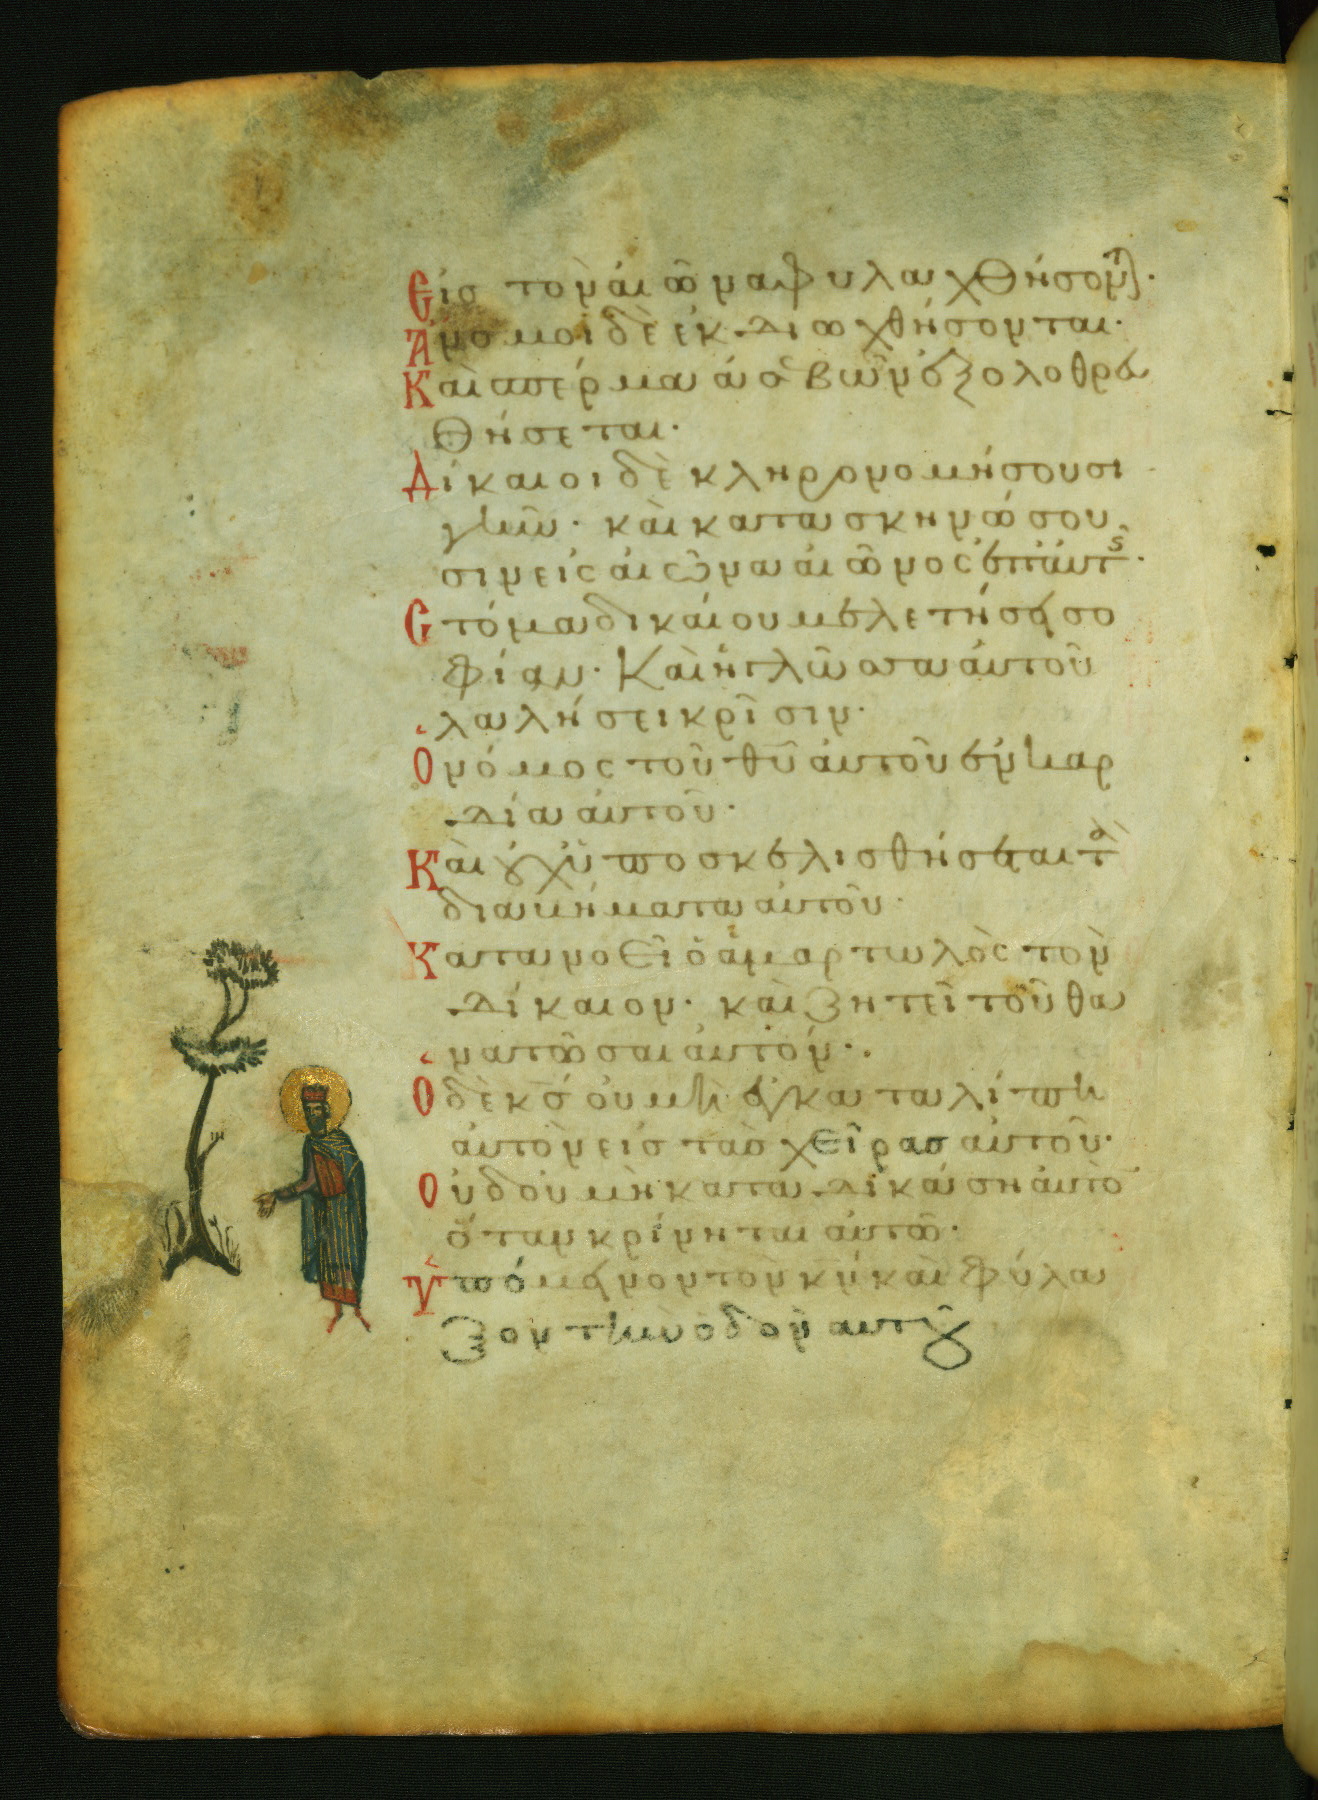 Εἰσ τὸν αἰῶνα φυλαχθήσοντ(αι)·
Ἄνομοι δὲ ἐκδιωχθήσονται·
Καὶ σπέρμα ἀσεβῶν ἐξολοθρευ
θήσεται·
Δίκαιοι δὲ κληρονομήσουσι
γῆν· καὶ κατασκηνώσου
σιν εἰς αἰῶνα αἰῶνος ἐπ' αὐτῆς·
Στόμα δικαίου μελετήσει σο
φίαν· Καὶ ἡ γλῶσσα αὐτοῦ
λαλήσει κρίσιν·
Ὁ νόμος τοῦ θῦ αὐτοῦ ἐν καρ
δία αὐτοῦ·
Καὶ οὐχ ὑποσκελισθήσεται τὰ
διαβήματα αὐτοῦ·
Κατανοεῖ ὁ ἁμαρτωλὸς τὸν
δίκαιον· καὶ ζητεῖ τοῦ θα
νατῶσαι αὐτόν·
Ὁ δὲ κσ οὐ μὴ ἐγκαταλίπη
αὐτὸν εἰσ τὰσ χεῖρασ αὐτοῦ·
Οὐδ' οὐ μὴ καταδικάση αὐτὸ
ὅταν κρίνηται αὐτῶ·
Ὑπόμεινον τὸν κν καὶ φύλα
ξον τὴν ὁδὸν αὐτοῦ